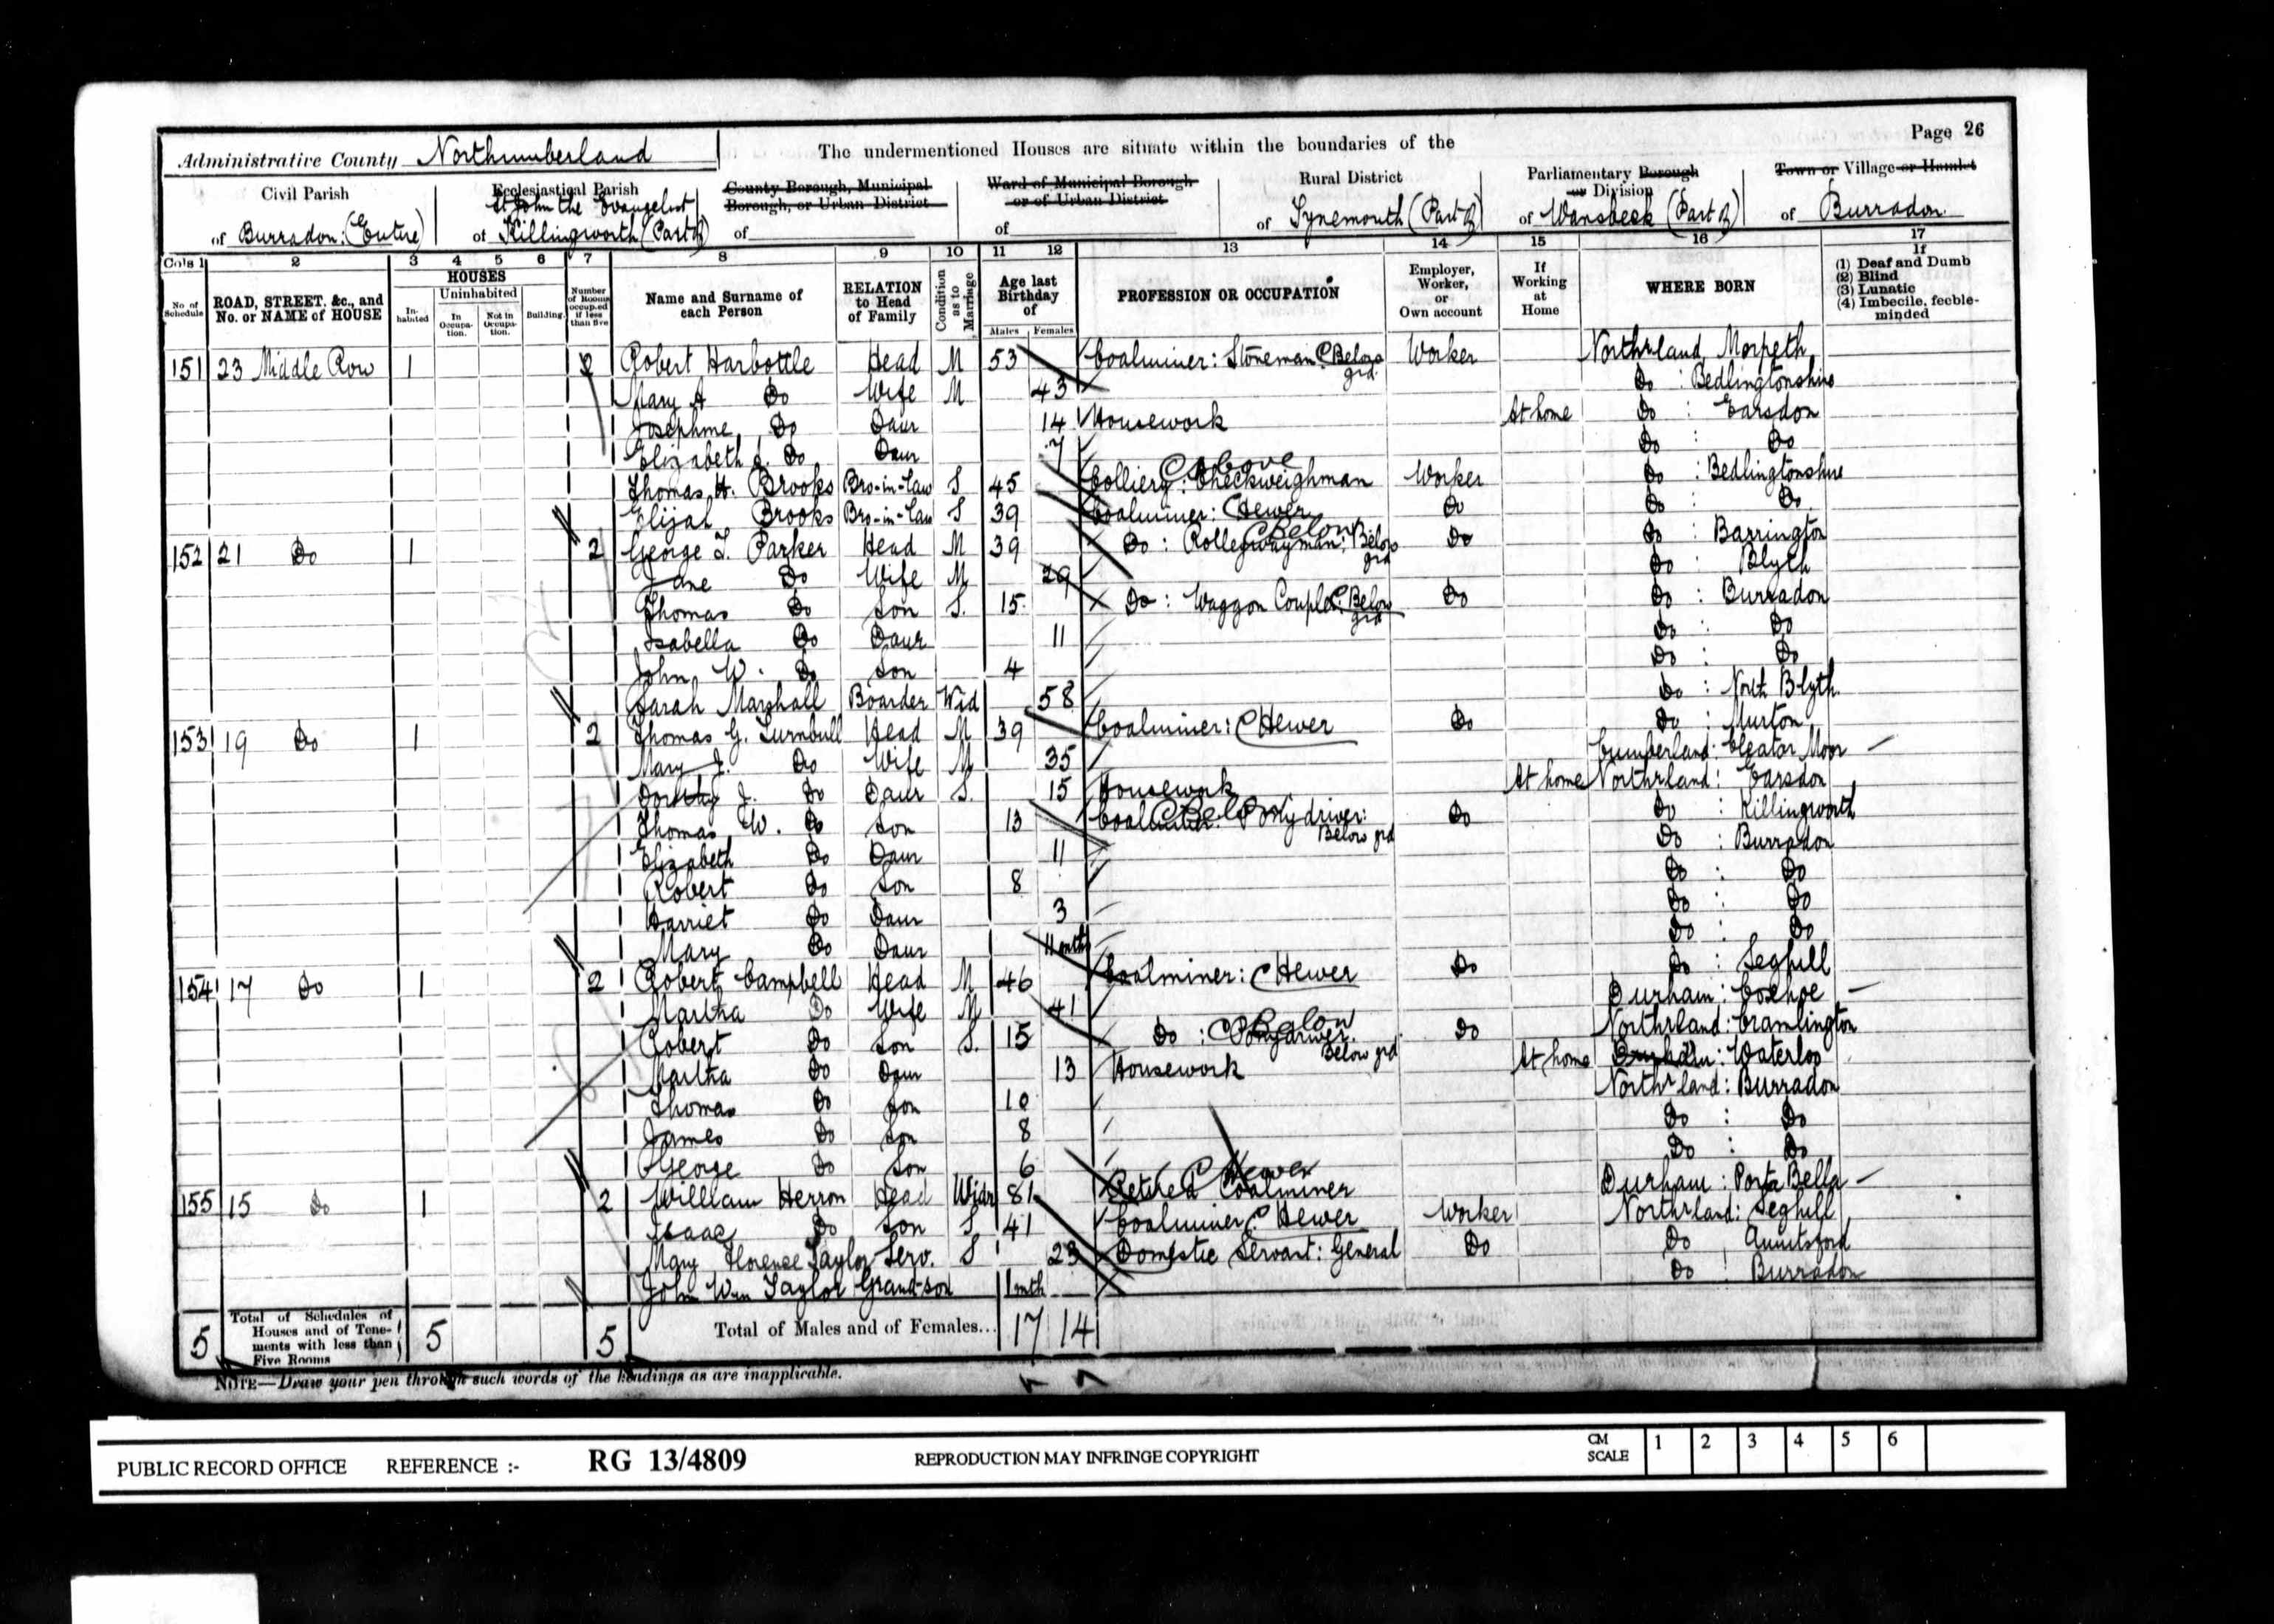 Page 26
Administrative County Northumberland The undermentioned Houses are situate within the boundaries of the
Civil Parish of Burradon: (Entire)
Ecclesiastical Parish St John the Evangelist of Killingworth (Part of)
County Borough, Municipal Borough, or Urban District of
Ward of Municipal Borough or of Urban District of
Rural District of Tynemouth (Part of)
Parliamentary Borough or Division of Wansbeck (Part of)
Town or Village or Hamlet of Burradon
Cols 1 2 3 4 5 6 7 8 9 10 11 12 13 14 15 16 17
No of Schedule
ROAD, STREET, &c., and No. or NAME of HOUSE
HOUSES
In-habited
Uninhabited
In Occupa-tion.
Not in Occupa-tion.
Building.
Number of Rooms occupied if less than five
Name and Surname of each Person
RELATION to Head of Family
Condition as to Marriage
Age last Birthday of
Males Females
PROFESSION OR OCCUPATION
Employer, Worker, or Own account
If Working at Home
WHERE BORN
If (1) Deaf and Dumb (2) Blind (3) Lunatic (4) Imbecile, feeble-minded
151 23 Middle Row 1 2 Robert Harbottle Head M 53 Coalminer: Stoneman Below grd Worker Northrland Morpeth
Mary A Do Wife M 43 Do : Bedlingtonshire
Josephine Do Daur 14 Housework At home Do : Earsdon
Elizabeth J. Do Daur 7 Do : Do
Thomas H. Brooks Bro-in-Law S 45 Colliery: Checkweighman Above Worker Do : Bedlingtonshire
Elijah Brooks Bro-in-Law S 39 Coalminer: Hewer Do Do : Do
152 21 Do 1 2 George T. Parker Head M 39 Do : Rolleywayman: Below grd Below Do Do : Barrington
Jane Do Wife M 29 Do : Blyth
Thomas Do Son S. 15 Do : Waggon Coupler: Below grd Do Do : Burradon
Isabella Do Daur 11 Do : Do
John W. Do Son 4 Do : Do
Sarah Marshall Boarder Wid 58 Do : North Blyth
153 19 Do 1 2 Thomas G. Turnbull Head M 39 Coalminer: Hewer Do Do : Murton
Mary J. Do Wife M 35 Cumberland: Cleator Moor
Dorothy J. Do Daur S. 15 Housework At home Northrland: Earsdon
Thomas W. Do Son 13 Coalminer: Pony driver: Below grd Below Do Do : Killingworth
Elizabeth Do Daur 11 Do : Burradon
Robert Do Son 8 Do : Do
Harriet Do Daur 3 Do : Do
Mary Do Daur 11 mths Do : Do
154 17 Do 1 2 Robert Campbell Head M 46 Coalminer: Hewer Do Do : Seghill
Martha Do Wife M 41 Durham: Coxhoe
Robert Do Son S. 15 Do : Pony driver. Below grd Below Do Northrland: Cramlington
Martha Do Daur 13 Housework At home Durham: Waterloo
Thomas Do Son 10 Northrland: Burradon
James Do Son 8 Do : Do
George Do Son 6 Do : Do
155 15 Do 1 2 William Herron Head Widr 81 Retired Coalminer Hewer Durham: Porta Bella
Isaac Do Son S 41 Coalminer: Hewer Worker Northrland: Seghill
Mary Florence Taylor Serv. S 23 Domestic Servant: General Do Do Annitsford
John Wm Taylor Grand-son 1 mth Do : Burradon
5 Total of Schedules of Houses and of Tene-ments with less than Five Rooms 5 5 Total of Males and of Females... 17 14
NOTE—Draw your pen through such words of the headings as are inapplicable.
PUBLIC RECORD OFFICE REFERENCE :- RG 13/4809 REPRODUCTION MAY INFRINGE COPYRIGHT CM SCALE 1 2 3 4 5 6